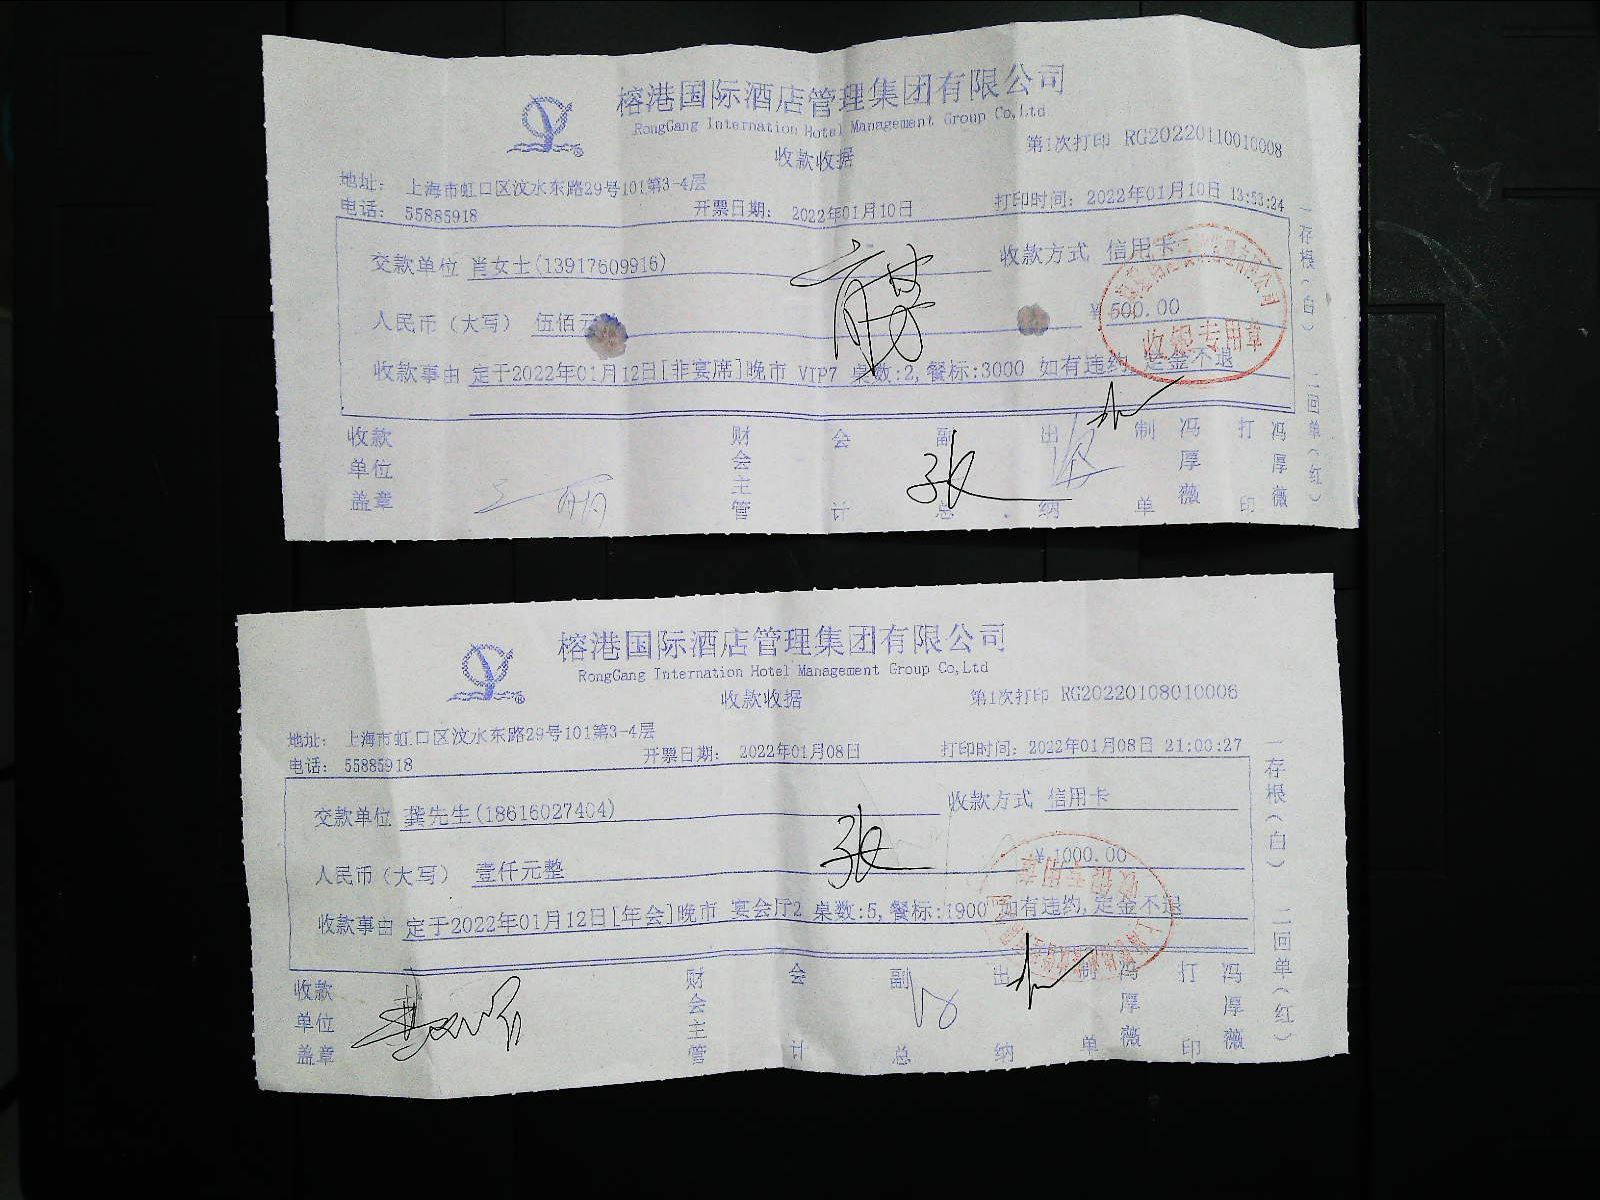 榕港国际酒店管理集团有限公司
RongGang Internation Hotel Management Group Co,Ltd
收款收据
第1次打印 RG20220110010008
地址: 上海市虹口区汶水东路29号101第3-4层
电话: 55885918
开票日期: 2022年01月10日
打印时间: 2022年01月10日 13:53:24
交款单位 肖女士(13917609916)
收款方式 信用卡
人民币(大写) 伍佰元
¥ 500.00
收款事由 定于2022年01月12日[非宴席]晚市 VIP7 桌数:2,餐标:3000 如有违约,定金不退
收银专用章
收款单位盖章
财会主管
会计
副总
张
出纳
制单
冯厚薇
打印
冯厚薇
一存根(白)
二回单(红)
榕港国际酒店管理集团有限公司
RongGang Internation Hotel Management Group Co,Ltd
收款收据
第1次打印 RG20220108010006
地址: 上海市虹口区汶水东路29号101第3-4层
电话: 55885918
开票日期: 2022年01月08日
打印时间: 2022年01月08日 21:00:27
交款单位 龚先生(18616027404)
收款方式 信用卡
人民币(大写) 壹仟元整
张
¥ 1000.00
收款事由 定于2022年01月12日[年会]晚市 宴会厅2 桌数:5,餐标:1900 如有违约,定金不退
收银专用章
收款单位盖章
财会主管
会计
副总
出纳
制单
冯厚薇
打印
冯厚薇
一存根(白)
二回单(红)